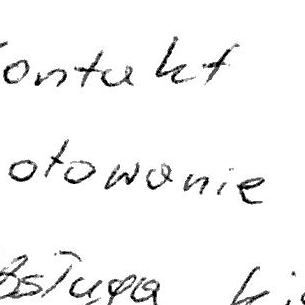 Kontakt
otowanie
bsługa ki